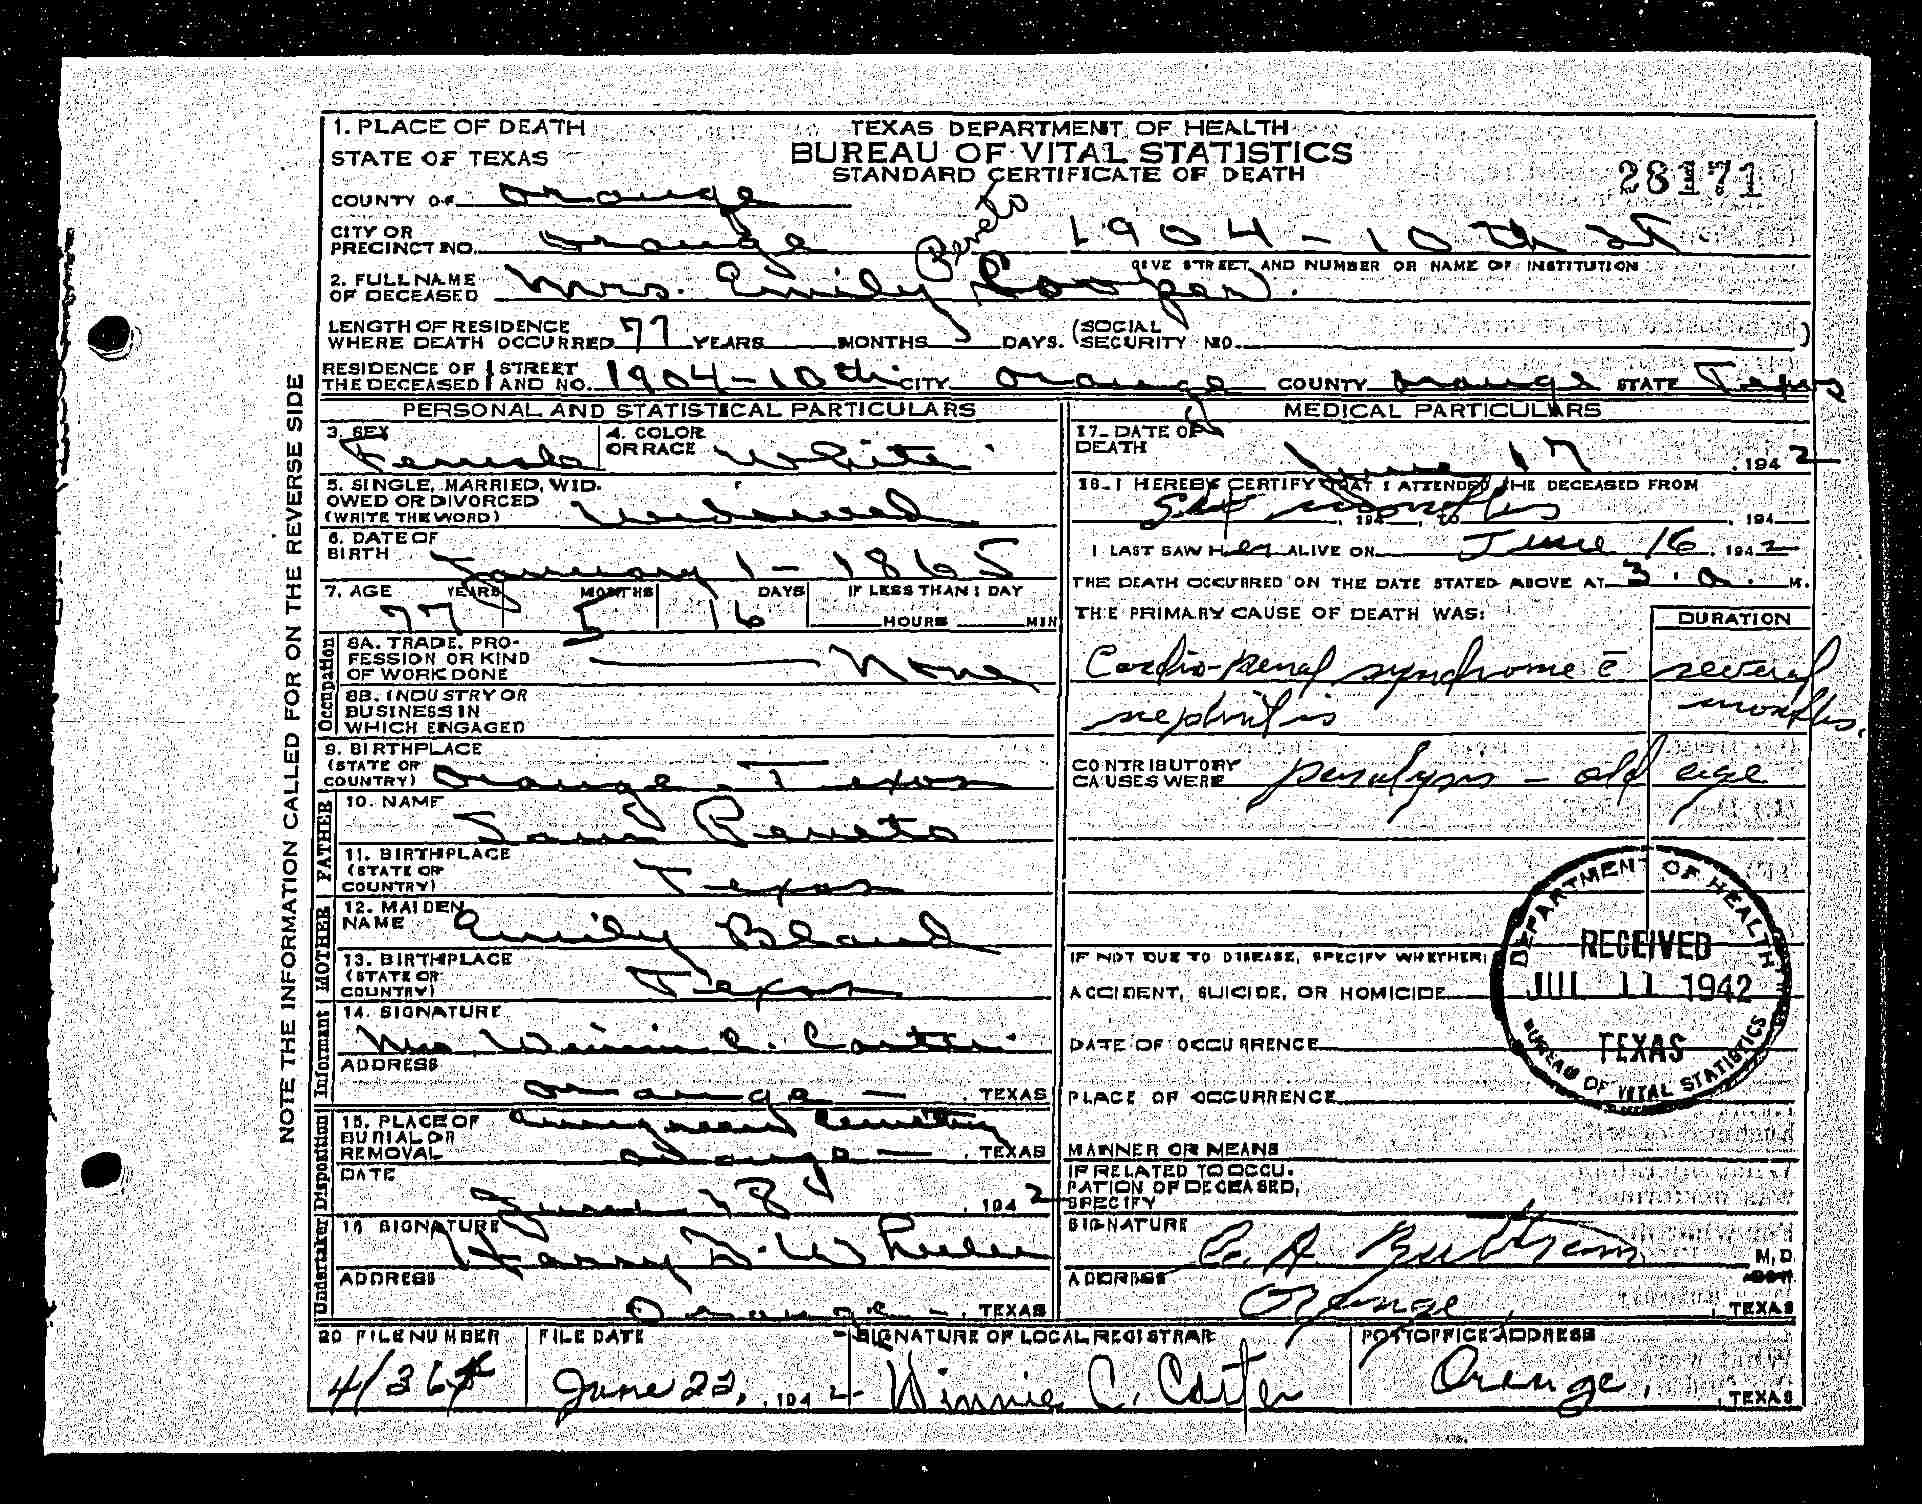 1. PLACE OF DEATH
STATE OF TEXAS
COUNTY OF Orange
CITY OR PRECINCT NO. Orange
TEXAS DEPARTMENT OF HEALTH
BUREAU OF VITAL STATISTICS
STANDARD CERTIFICATE OF DEATH
28171
1904 - 10th St.
GIVE STREET AND NUMBER OR NAME OF INSTITUTION
2. FULL NAME OF DECEASED Mrs. Emily Peveto Cooper.
LENGTH OF RESIDENCE WHERE DEATH OCCURRED 77 YEARS MONTHS DAYS. (SOCIAL SECURITY NO. )
RESIDENCE OF THE DECEASED STREET AND NO. 1904-10th CITY Orange COUNTY Orange STATE Texas
PERSONAL AND STATISTICAL PARTICULARS
3. SEX Female
4. COLOR OR RACE White
5. SINGLE, MARRIED, WIDOWED OR DIVORCED (WRITE THE WORD) Widowed
6. DATE OF BIRTH January 1 - 1865
7. AGE YEARS MONTHS DAYS IF LESS THAN 1 DAY
77 5 16 HOURS MIN
Occupation
8A. TRADE, PROFESSION OR KIND OF WORK DONE None
8B. INDUSTRY OR BUSINESS IN WHICH ENGAGED
9. BIRTHPLACE (STATE OR COUNTRY) Orange - Texas
FATHER
10. NAME Sam Peveto
11. BIRTHPLACE (STATE OR COUNTRY) Texas
MOTHER
12. MAIDEN NAME Emily Bland
13. BIRTHPLACE (STATE OR COUNTRY) Texas
Informant
14. SIGNATURE Mrs. Winnie C. Carter
ADDRESS
Orange - , TEXAS
Disposition
15. PLACE OF BURIAL OR REMOVAL Evergreen Cemetery
Orange - , TEXAS
DATE
June 18, 1942
Undertaker
16 SIGNATURE
Harry D. Wheeler
ADDRESS
Orange - , TEXAS
MEDICAL PARTICULARS
17. DATE OF DEATH June 17, 1942
18. I HEREBY CERTIFY THAT I ATTENDED THE DECEASED FROM
Six months, 194 , TO , 194
I LAST SAW Her ALIVE ON June 16, 1942
THE DEATH OCCURRED ON THE DATE STATED ABOVE AT 3 a. M.
THE PRIMARY CAUSE OF DEATH WAS: DURATION
Cardio-Renal syndrome c̄ several
nephritis months.
CONTRIBUTORY CAUSES WERE paralysis - old age
IF NOT DUE TO DISEASE, SPECIFY WHETHER:
ACCIDENT, SUICIDE, OR HOMICIDE
DATE OF OCCURRENCE
PLACE OF OCCURRENCE
MANNER OR MEANS
IF RELATED TO OCCUPATION OF DECEASED, SPECIFY
SIGNATURE
M.D.
ADDRESS
Orange, , TEXAS
DEPARTMENT OF HEALTH
RECEIVED
JUL 11 1942
TEXAS
BUREAU OF VITAL STATISTICS
20 FILE NUMBER FILE DATE SIGNATURE OF LOCAL REGISTRAR POSTOFFICE ADDRESS
June 22, 1942 Winnie C. Carter Orange, , TEXAS
NOTE THE INFORMATION CALLED FOR ON THE REVERSE SIDE